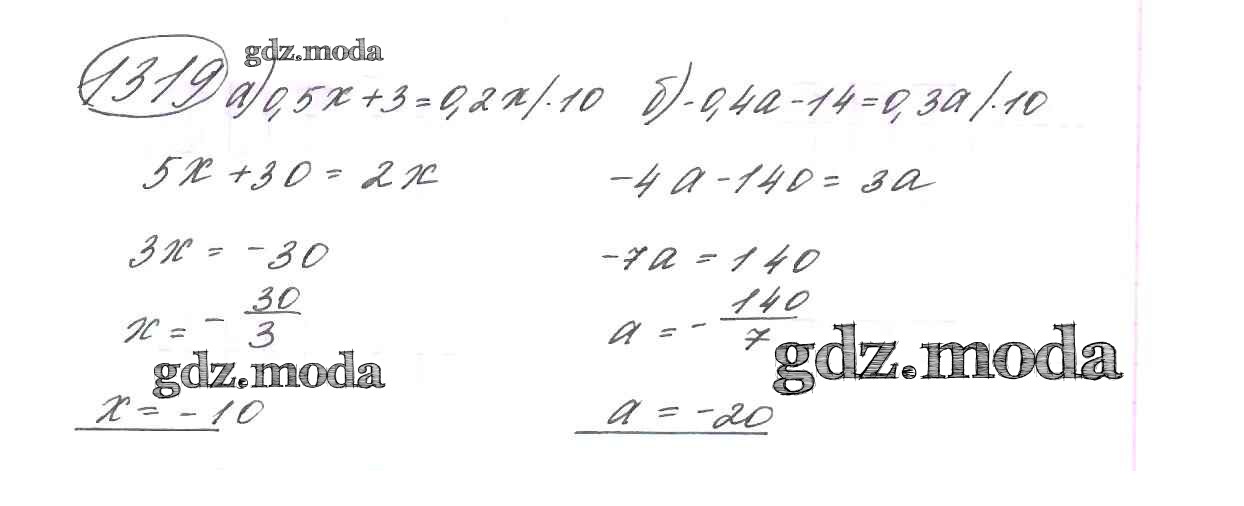 gdz.moda
1319 а) 0,5x + 3 = 0,2x /·10
5x + 30 = 2x
3x = -30
x = - 30/3
gdz.moda
x = -10
б) -0,4a - 14 = 0,3a /·10
-4a - 140 = 3a
-7a = 140
a = - 140/7
gdz.moda
a = -20